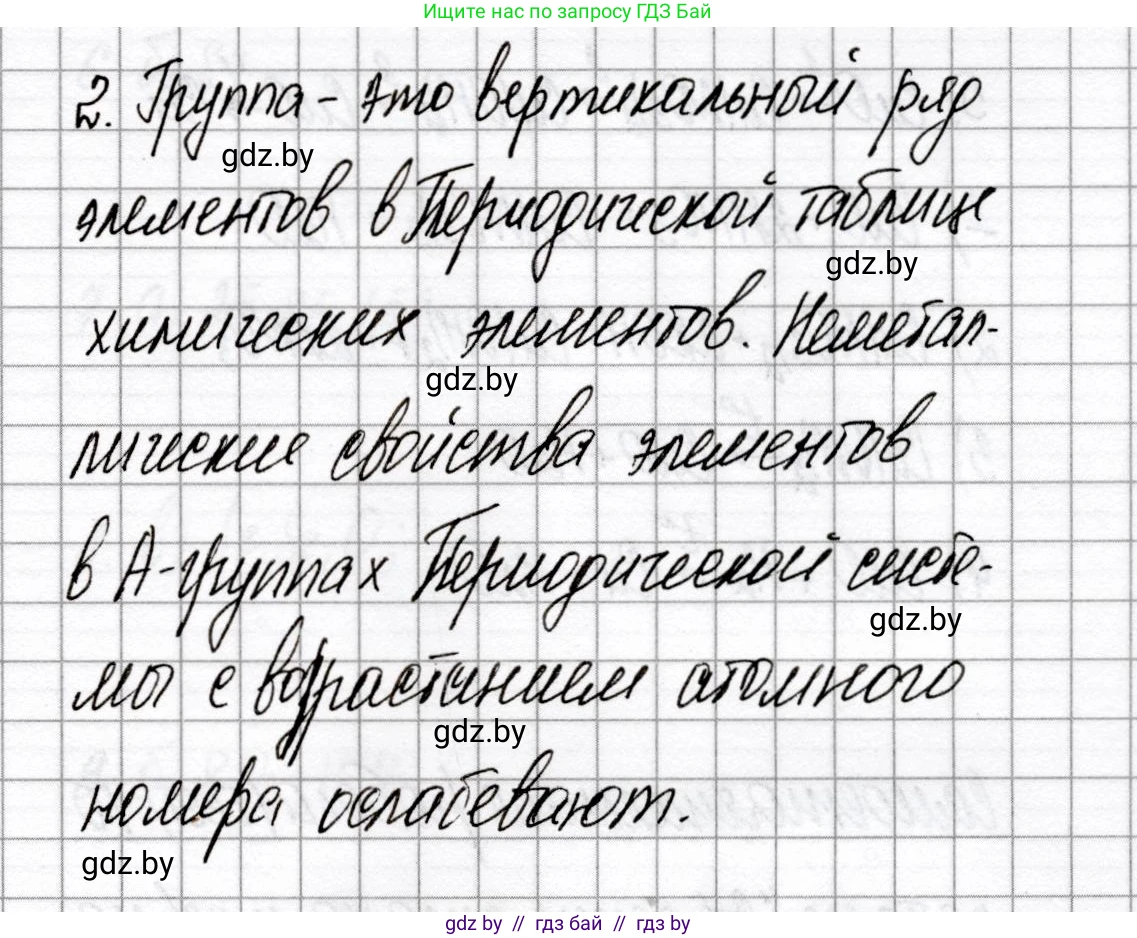 Ищите нас по запросу ГДЗ Бай
2. Группа - это вертикальный ряд
gdz.by
элементов в Периодической таблице
gdz.by
химических элементов. Неметал-
gdz.by
лические свойства элементов
в А-группах Периодической систе-
gdz.by
мы с возрастанием атомного
gdz.by
номера ослабевают.
gdz.by
gdz.by // гдз бай // гдз.by